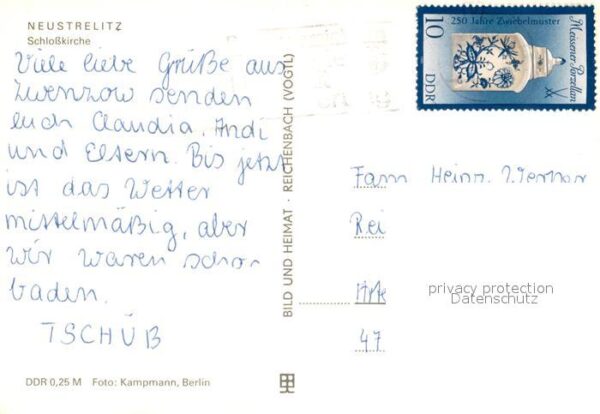 NEUSTRELITZ
Schloßkirche
Viele liebe Grüße aus
Zwenzow senden
euch Claudia, Andi
und Eltern. Bis jetzt
ist das Wetter
mittelmäßig, aber
wir waren schon
baden.
TSCHÜß
DDR 0,25 M Foto: Kampmann, Berlin
BILD UND HEIMAT · REICHENBACH (VOGTL)
10
DDR
250 Jahre Zwiebelmuster
Meissener Porzellan
Fam Heinz. Werner
Rei
47
privacy protection
Datenschutz